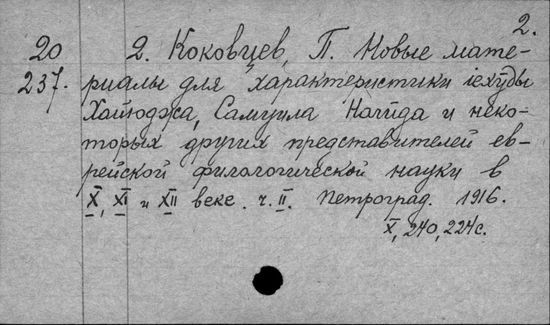 2.
20 2. Коковцев, П. Новые мате-
237. риалы для характеристики iехуды
Хайюджа, Самуила Нагида и неко-
торых других представителей ев-
рейской филологической науки в
X, XI и XII веке. ч. II. Петроград. 1916.
X, 240, 224 с.